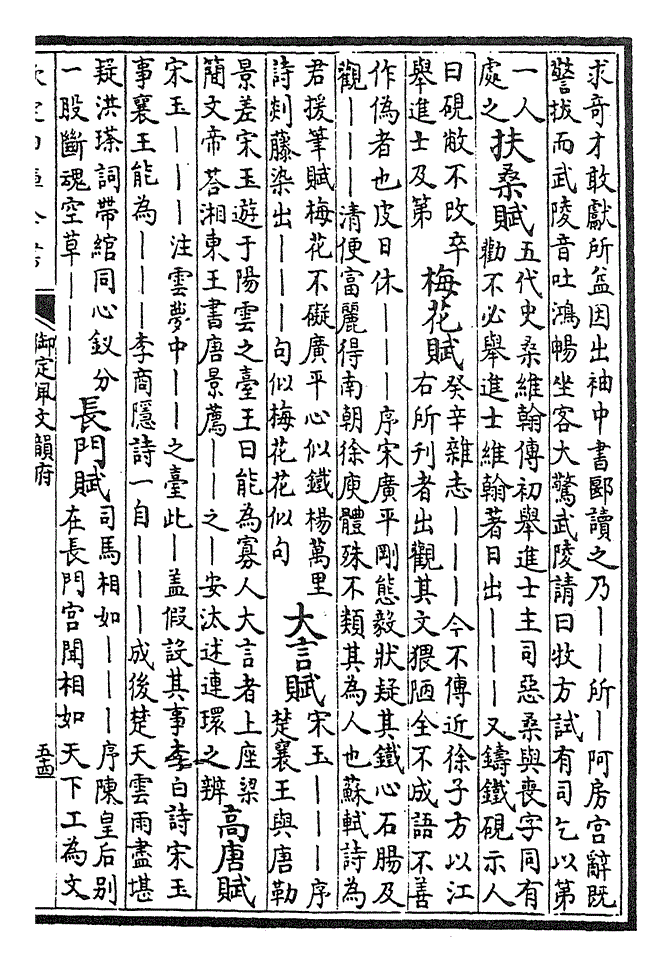 求奇才敢獻所益因出袖中書郾讀之乃丨丨所丨阿房宮辭既
警拔而武陵音吐鴻暢坐客大驚武陵請曰牧方試有司乞以第
一人
處之
扶桑賦
五代史桑維翰傳初舉進士主司惡桑與喪字同有
勸不必舉進士維翰著日出丨丨丨又鑄鐵硯示人
曰硯敝不改卒
舉進士及第
梅花賦
癸辛雜志丨丨丨今不傳近徐子方以江
右所刊者出觀其文猥陋全不成語不善
作偽者也皮日休丨丨丨序宋廣平剛態毅狀疑其鐵心石腸及
觀丨丨丨清便富麗得南朝徐庾體殊不類其為人也蘇軾詩為
君援筆賦梅花不礙廣平心似鐵楊萬里
詩剡藤染出丨丨丨句似梅花花似句
大言賦
宋玉丨丨丨序
楚襄王與唐勒
景差宋玉遊于陽雲之臺王曰能為寡人大言者上座梁
簡文帝荅湘東王書唐景薦丨丨之丨安汰述連環之辨
高唐賦
宋玉丨丨丨注雲夢中丨丨之臺此丨盖假設其事李白詩宋玉
事襄王能為丨丨丨李商隱詩一自丨丨丨成後楚天雲雨盡堪
疑洪瑹詞帶綰同心釵分
一股斷魂空草丨丨丨
長門賦
司馬相如丨丨丨序陳皇后别
在長門宮聞相如天下工為文
欽定四庫全書
御定佩文韻府
五四